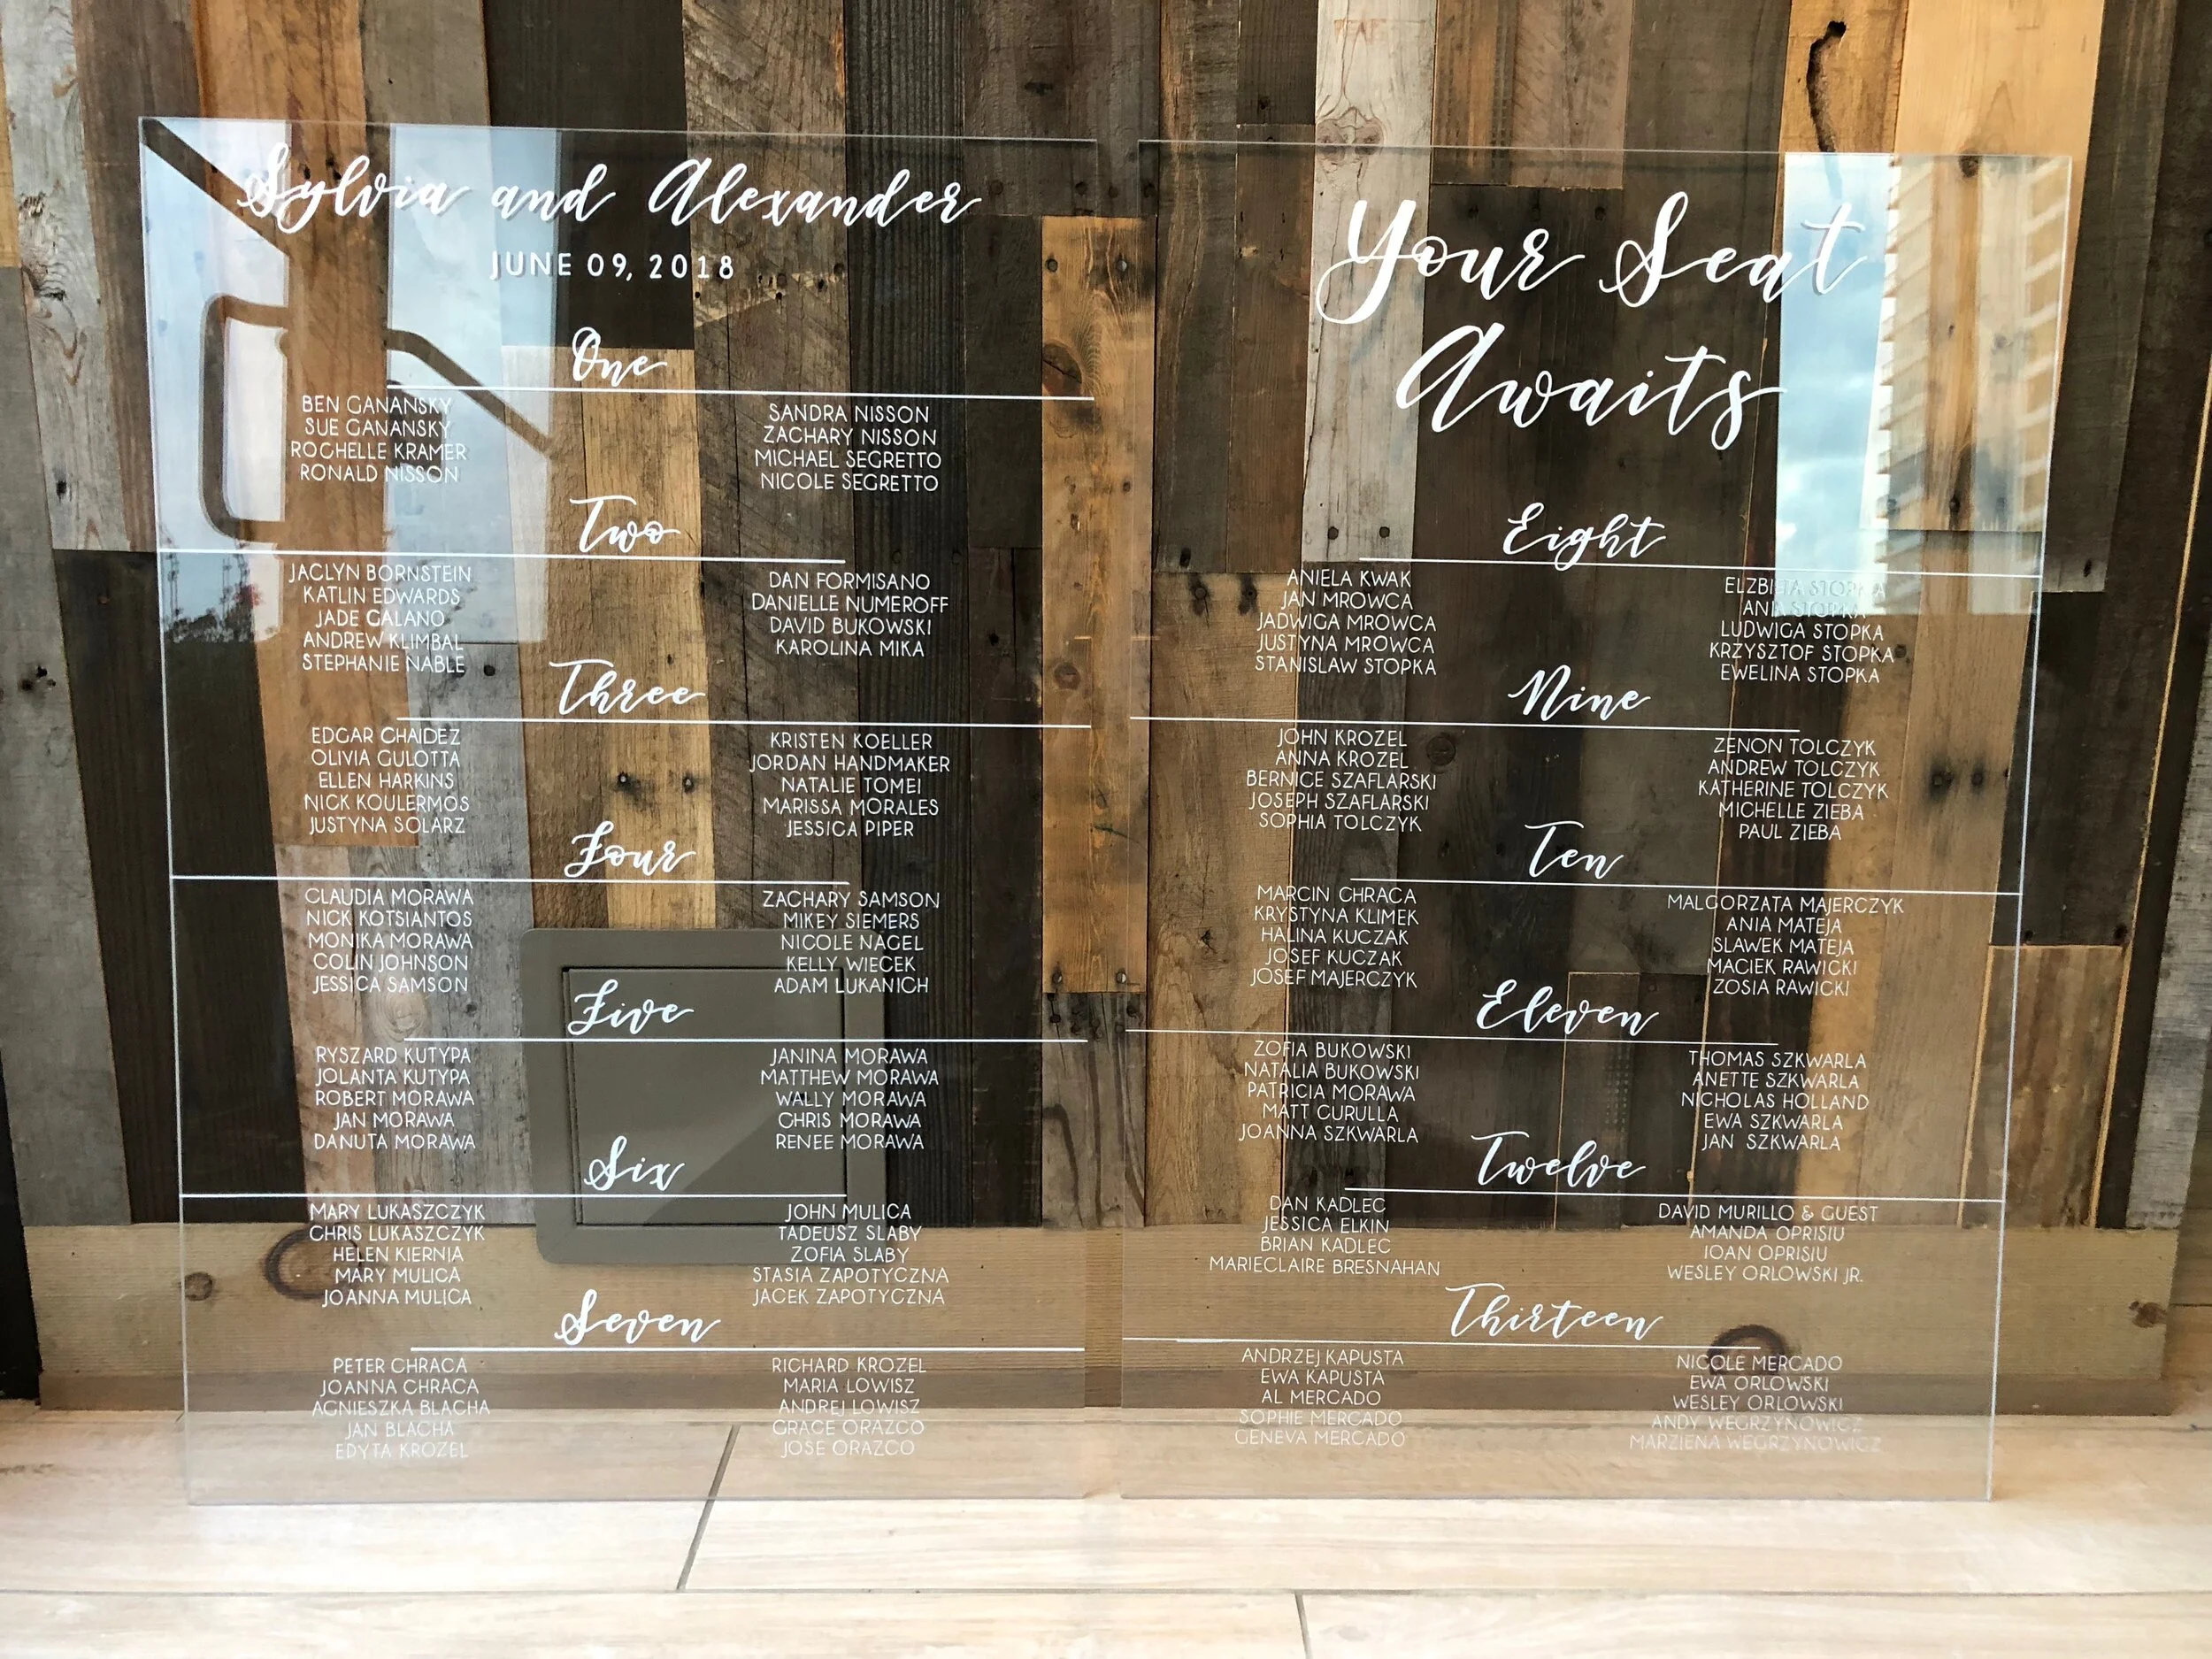 Sylvia and Alexander
JUNE 09, 2018
One
BEN GANANSKY
SUE GANANSKY
ROCHELLE KRAMER
RONALD NISSON
SANDRA NISSON
ZACHARY NISSON
MICHAEL SEGRETTO
NICOLE SEGRETTO
Two
JACLYN BORNSTEIN
KATLIN EDWARDS
JADE GALANO
ANDREW KLIMBAL
STEPHANIE NABLE
DAN FORMISANO
DANIELLE NUMEROFF
DAVID BUKOWSKI
KAROLINA MIKA
Three
EDGAR CHAIDEZ
OLIVIA GULOTTA
ELLEN HARKINS
NICK KOULERMOS
JUSTYNA SOLARZ
KRISTEN KOELLER
JORDAN HANDMAKER
NATALIE TOMEI
MARISSA MORALES
JESSICA PIPER
Four
CLAUDIA MORAWA
NICK KOTSIANTOS
MONIKA MORAWA
COLIN JOHNSON
JESSICA SAMSON
ZACHARY SAMSON
MIKEY SIEMERS
NICOLE NAGEL
KELLY WIECEK
ADAM LUKANICH
Five
RYSZARD KUTYPA
JOLANTA KUTYPA
ROBERT MORAWA
JAN MORAWA
DANUTA MORAWA
JANINA MORAWA
MATTHEW MORAWA
WALLY MORAWA
CHRIS MORAWA
RENEE MORAWA
Six
MARY LUKASZCZYK
CHRIS LUKASZCZYK
HELEN KIERNIA
MARY MULICA
JOANNA MULICA
JOHN MULICA
TADEUSZ SLABY
ZOFIA SLABY
STASIA ZAPOTYCZNA
JACEK ZAPOTYCZNA
Seven
PETER CHRACA
JOANNA CHRACA
AGNIESZKA BLACHA
JAN BLACHA
EDYTA KROZEL
RICHARD KROZEL
MARIA LOWISZ
ANDREJ LOWISZ
GRACE ORAZCO
JOSE ORAZCO
Your Seat
Awaits
Eight
ANIELA KWAK
JAN MROWCA
JADWIGA MROWCA
JUSTYNA MROWCA
STANISLAW STOPKA
ELZBIETA STOPKA
ANIA STOPKA
LUDWIGA STOPKA
KRZYSZTOF STOPKA
EWELINA STOPKA
Nine
JOHN KROZEL
ANNA KROZEL
BERNICE SZAFLARSKI
JOSEPH SZAFLARSKI
SOPHIA TOLCZYK
ZENON TOLCZYK
ANDREW TOLCZYK
KATHERINE TOLCZYK
MICHELLE ZIEBA
PAUL ZIEBA
Ten
MARCIN CHRACA
KRYSTYNA KLIMEK
HALINA KUCZAK
JOSEF KUCZAK
JOSEF MAJERCZYK
MALGORZATA MAJERCZYK
ANIA MATEJA
SLAWEK MATEJA
MACIEK RAWICKI
ZOSIA RAWICKI
Eleven
ZOFIA BUKOWSKI
NATALIA BUKOWSKI
PATRICIA MORAWA
MATT CURULLA
JOANNA SZKWARLA
THOMAS SZKWARLA
ANETTE SZKWARLA
NICHOLAS HOLLAND
EWA SZKWARLA
JAN SZKWARLA
Twelve
DAN KADLEC
JESSICA ELKIN
BRIAN KADLEC
MARIECLAIRE BRESNAHAN
DAVID MURILLO & GUEST
AMANDA OPRISIU
IOAN OPRISIU
WESLEY ORLOWSKI JR.
Thirteen
ANDRZEJ KAPUSTA
EWA KAPUSTA
AL MERCADO
SOPHIE MERCADO
GENEVA MERCADO
NICOLE MERCADO
EWA ORLOWSKI
WESLEY ORLOWSKI
ANDY WEGRZYNOWICZ
MARZIENA WEGRZYNOWICZ